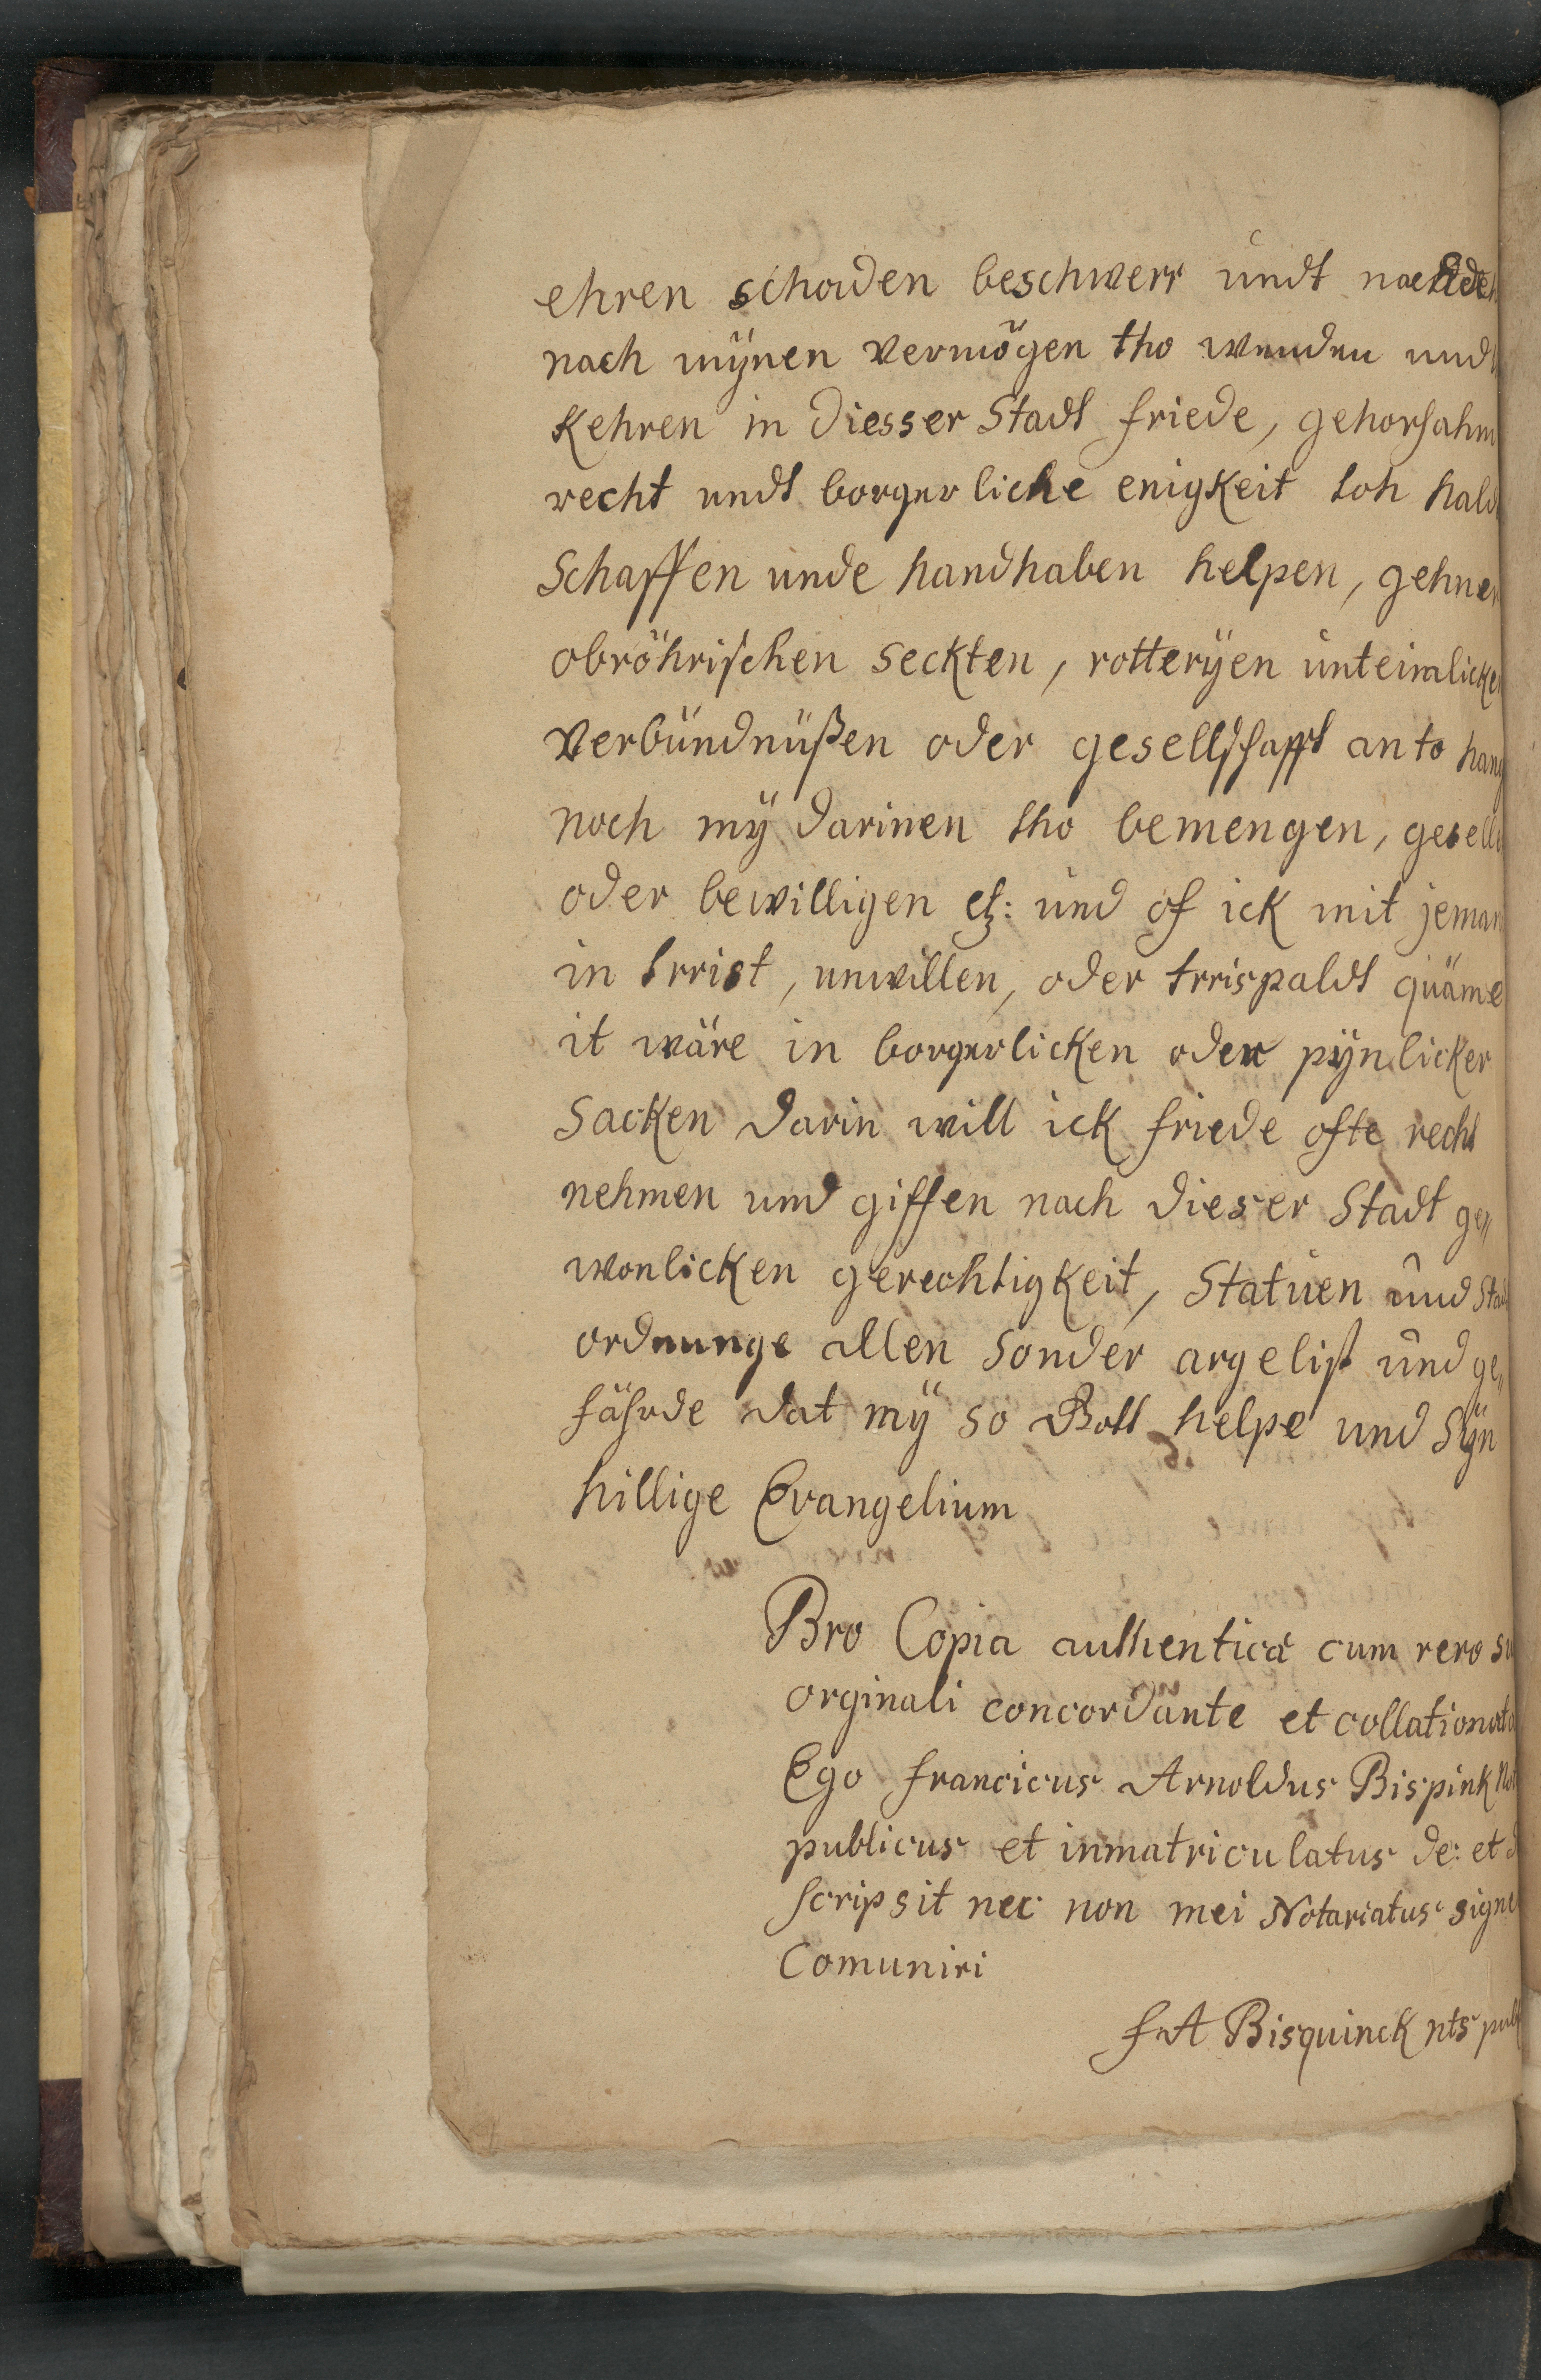 ehren schaden beschwerr undt
nach mÿnen vermögen tho wenden und
Kehren in diesser Stadt friede, gehorsahm
recht undt borgerliche enigkeit toh hald
Schaffen unde handhaben helpen, gehnen
obröhrischen seckten, rotterÿen
verbündnüßen oder gesellschafft an to hang
noch mÿ darinen tho bemengen, gesell
oder bewilligen etz: und of ick mit jeman
in trrist, unwillen, oder trrispaldt quäme
it wäre in borgerlicken oder pÿnlicker
sacken darin will ick friede ofte recht
nehmen und giffen nach dieser Stadt ge„
wonlicken gerechtigkeit, Statuen und Sta
ordnunge allen sonder argelist und ge„
fährde dat mÿ so Gott helpe und sÿn
hillige Evangelium
Pro Copia authentica cum vero su
orginali concordante et collationata
Ego francicus Arnoldus Bispink Not
publicus et inmatriculatus de: et
scripsit nec non mei Notariatus signe
Comuniri
f A Bisquinck nts publ